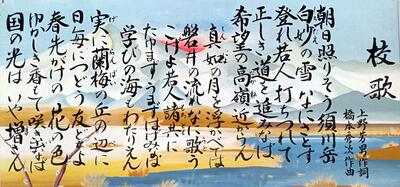 校歌
作詞
橋本 作曲
朝日照りそう須川岳
白妙の雪なにさとす
登れ若人打ちつれて
正しき道を進みなば
希望の高嶺近からん
真如の月を浮かべては
磐井の流れなに歌う
こげよ若人諸共に
たゆまずうまずはげみなば
学びの海もわたりえん
実に蘭梅の丘の辺に
日毎につどう友どちよ
春光がけの花の色
ゆかしき香もて咲き出なば
国の光はいや増さん